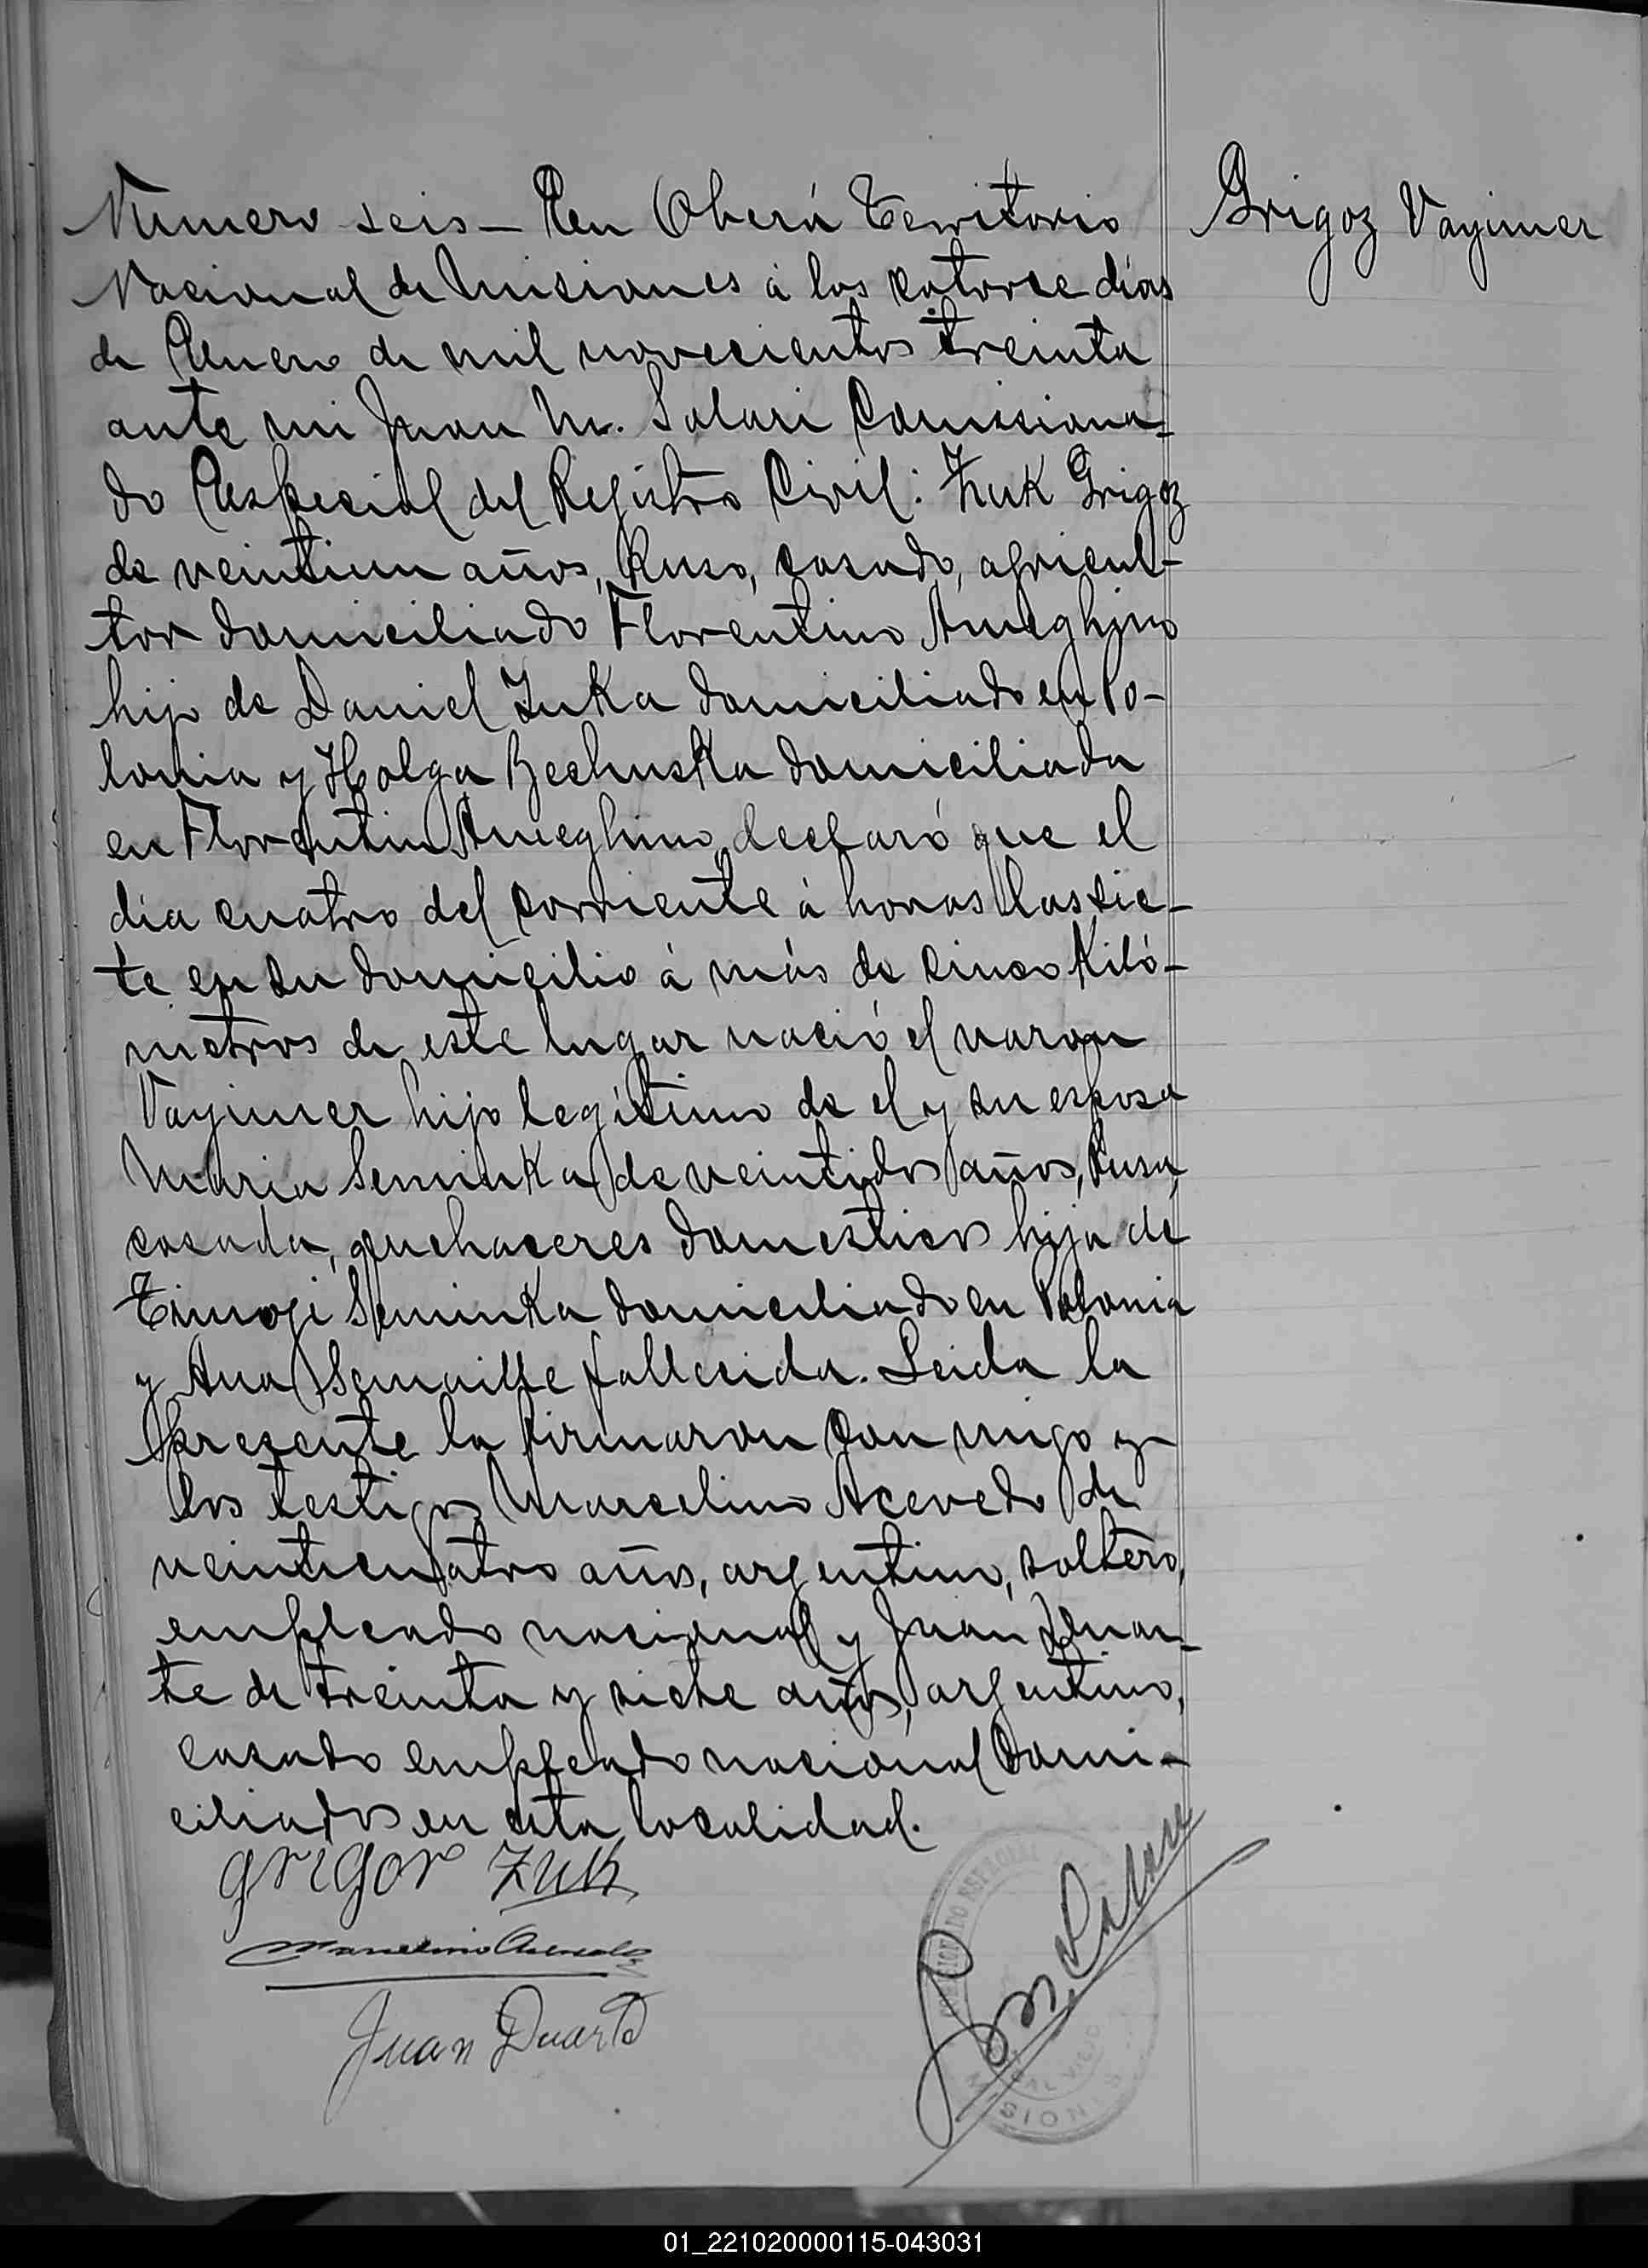 Número seis – En Oberá Territorio
Nacional de Misiones á los catorse días
de Enero de mil novecientos treinta
ante mi Juan M. Solari Comisiona-
do Especial del Registro Civil: Zuk Grigoz
de veintiun años, Ruso, casado, agricul-
tor domiciliado Florentino Ameghino
hijo de Daniel Zuka domiciliado en Po-
lonia y Holga Bechuska domiciliada
en Florentino Ameghino, declaró que el
día cuatro del corriente á horas las sie-
te en su domicilio á más de cinco kiló-
metros de este lugar nació el varon
Vayimer hijo legítimo de el y su esposa
Maria Seminka de veintidos años, Rusa,
casada, quehaceres domesticos hija de
Timoji Seminka domiciliado en Polonia
y Ana fallecida. Leida la
presente la firmaron con migo y
los testigos Marcelino Acevedo de
veinticuatro años, argentino, soltero,
empleado nacional y Juan Duar-
te de treinta y siete años, argentino,
casado empleado nacional domi-
ciliados en esta localidad.
Grigoz Vayimer
grigor Zuk
Marcelino Acevedo
Juan Duarte
01_221020000115-043031